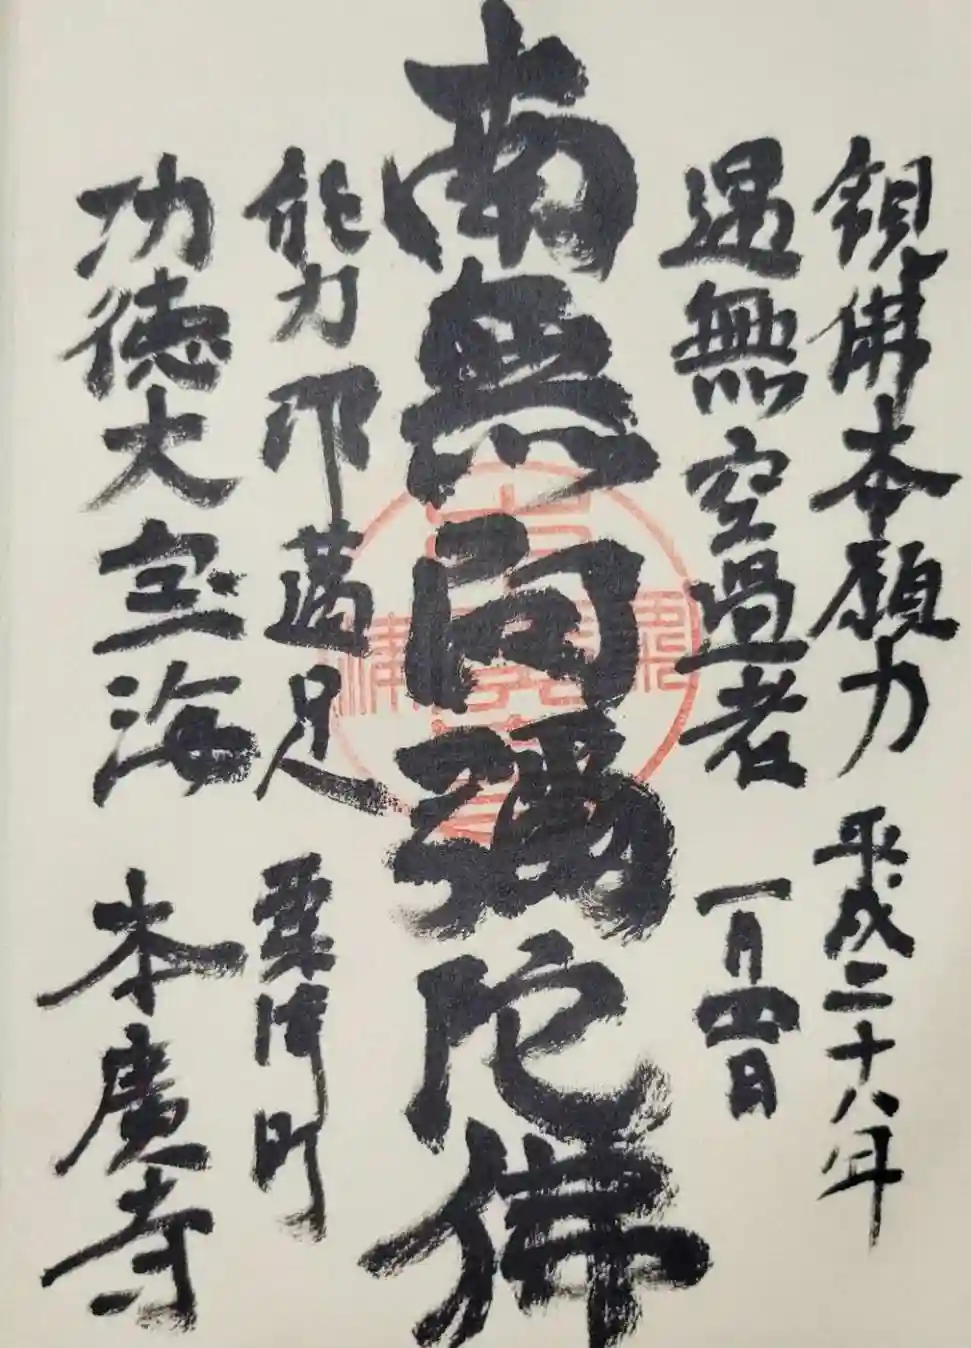 観佛本願力 平成二十八年
遇無空過者 一月四日
南無阿彌陀佛
能 満足 粟津町
功徳大宝海 本廣寺